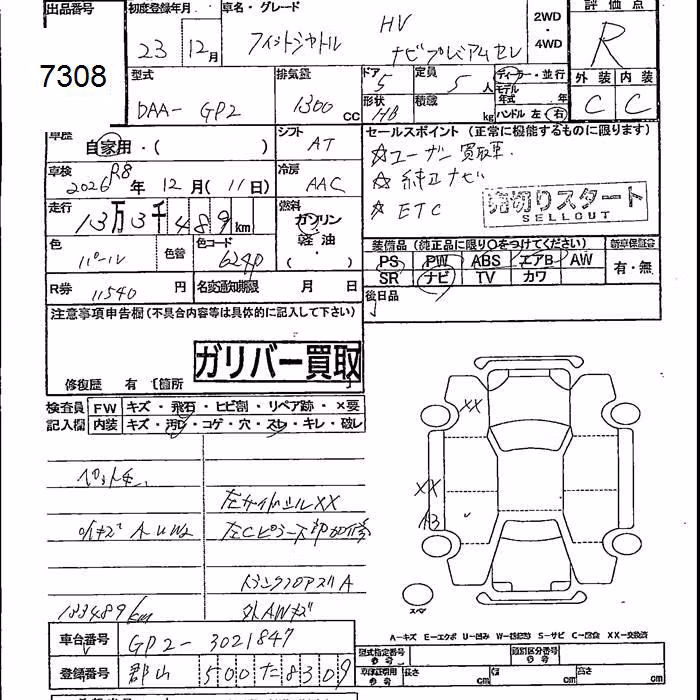 出品番号 初度登録年月 車名・グレード 2WD・4WD 評価点
7308 23 12月 フィットシャトル HV ナビプレミアムセレ R
型式 排気量 ドア 定員 ディーラー・並行 外装 内装
DAA- GP2 1300 cc 5 5人 モデル年式 年 C C
形状 HB 積載 kg ハンドル 左 右
車歴 自家用・( ) シフト AT セールスポイント (正常に機能するものに限ります)
☆ユーザー買取車.
車検 2026 R8年 12月 (11日) 冷房 AAC ☆純正ナビ
☆ ETC 売切りスタート
SELLOUT
走行 13万3千489km 燃料 ガソリン 軽油 ( )
色 パール 色替 色コード 624P
装備品 (純正品に限り○をつけてください) 新車保証書
PS PW ABS エアB AW 有・無
SR ナビ TV カワ
R券 11540円 名変通知期限 月 日 後日品
注意事項申告欄(不具合内容等は具体的に記入して下さい)
ガリバー買取
修復歴 有 〔箇所 〕
検査員 FW キズ・飛石・ヒビ割・リペア跡・×要
記入欄 内装 キズ・汚レ・コゲ・穴・スレ・キレ・破レ
XX
ペット毛.
XX
左サイドシルXX
小キズ A U W2 左Cピラー下部曲修
トランクフロアズリA
133489km 外AWキズ
スペア
A-キズ E-エクボ U-凹み W-補修跡 S-サビ C-腐食 XX-交換済
車台番号 GP2-3021847
型式指定番号 類別区分番号
登録番号 郡山 500 た 8309
長さ cm 幅 cm 高さ cm